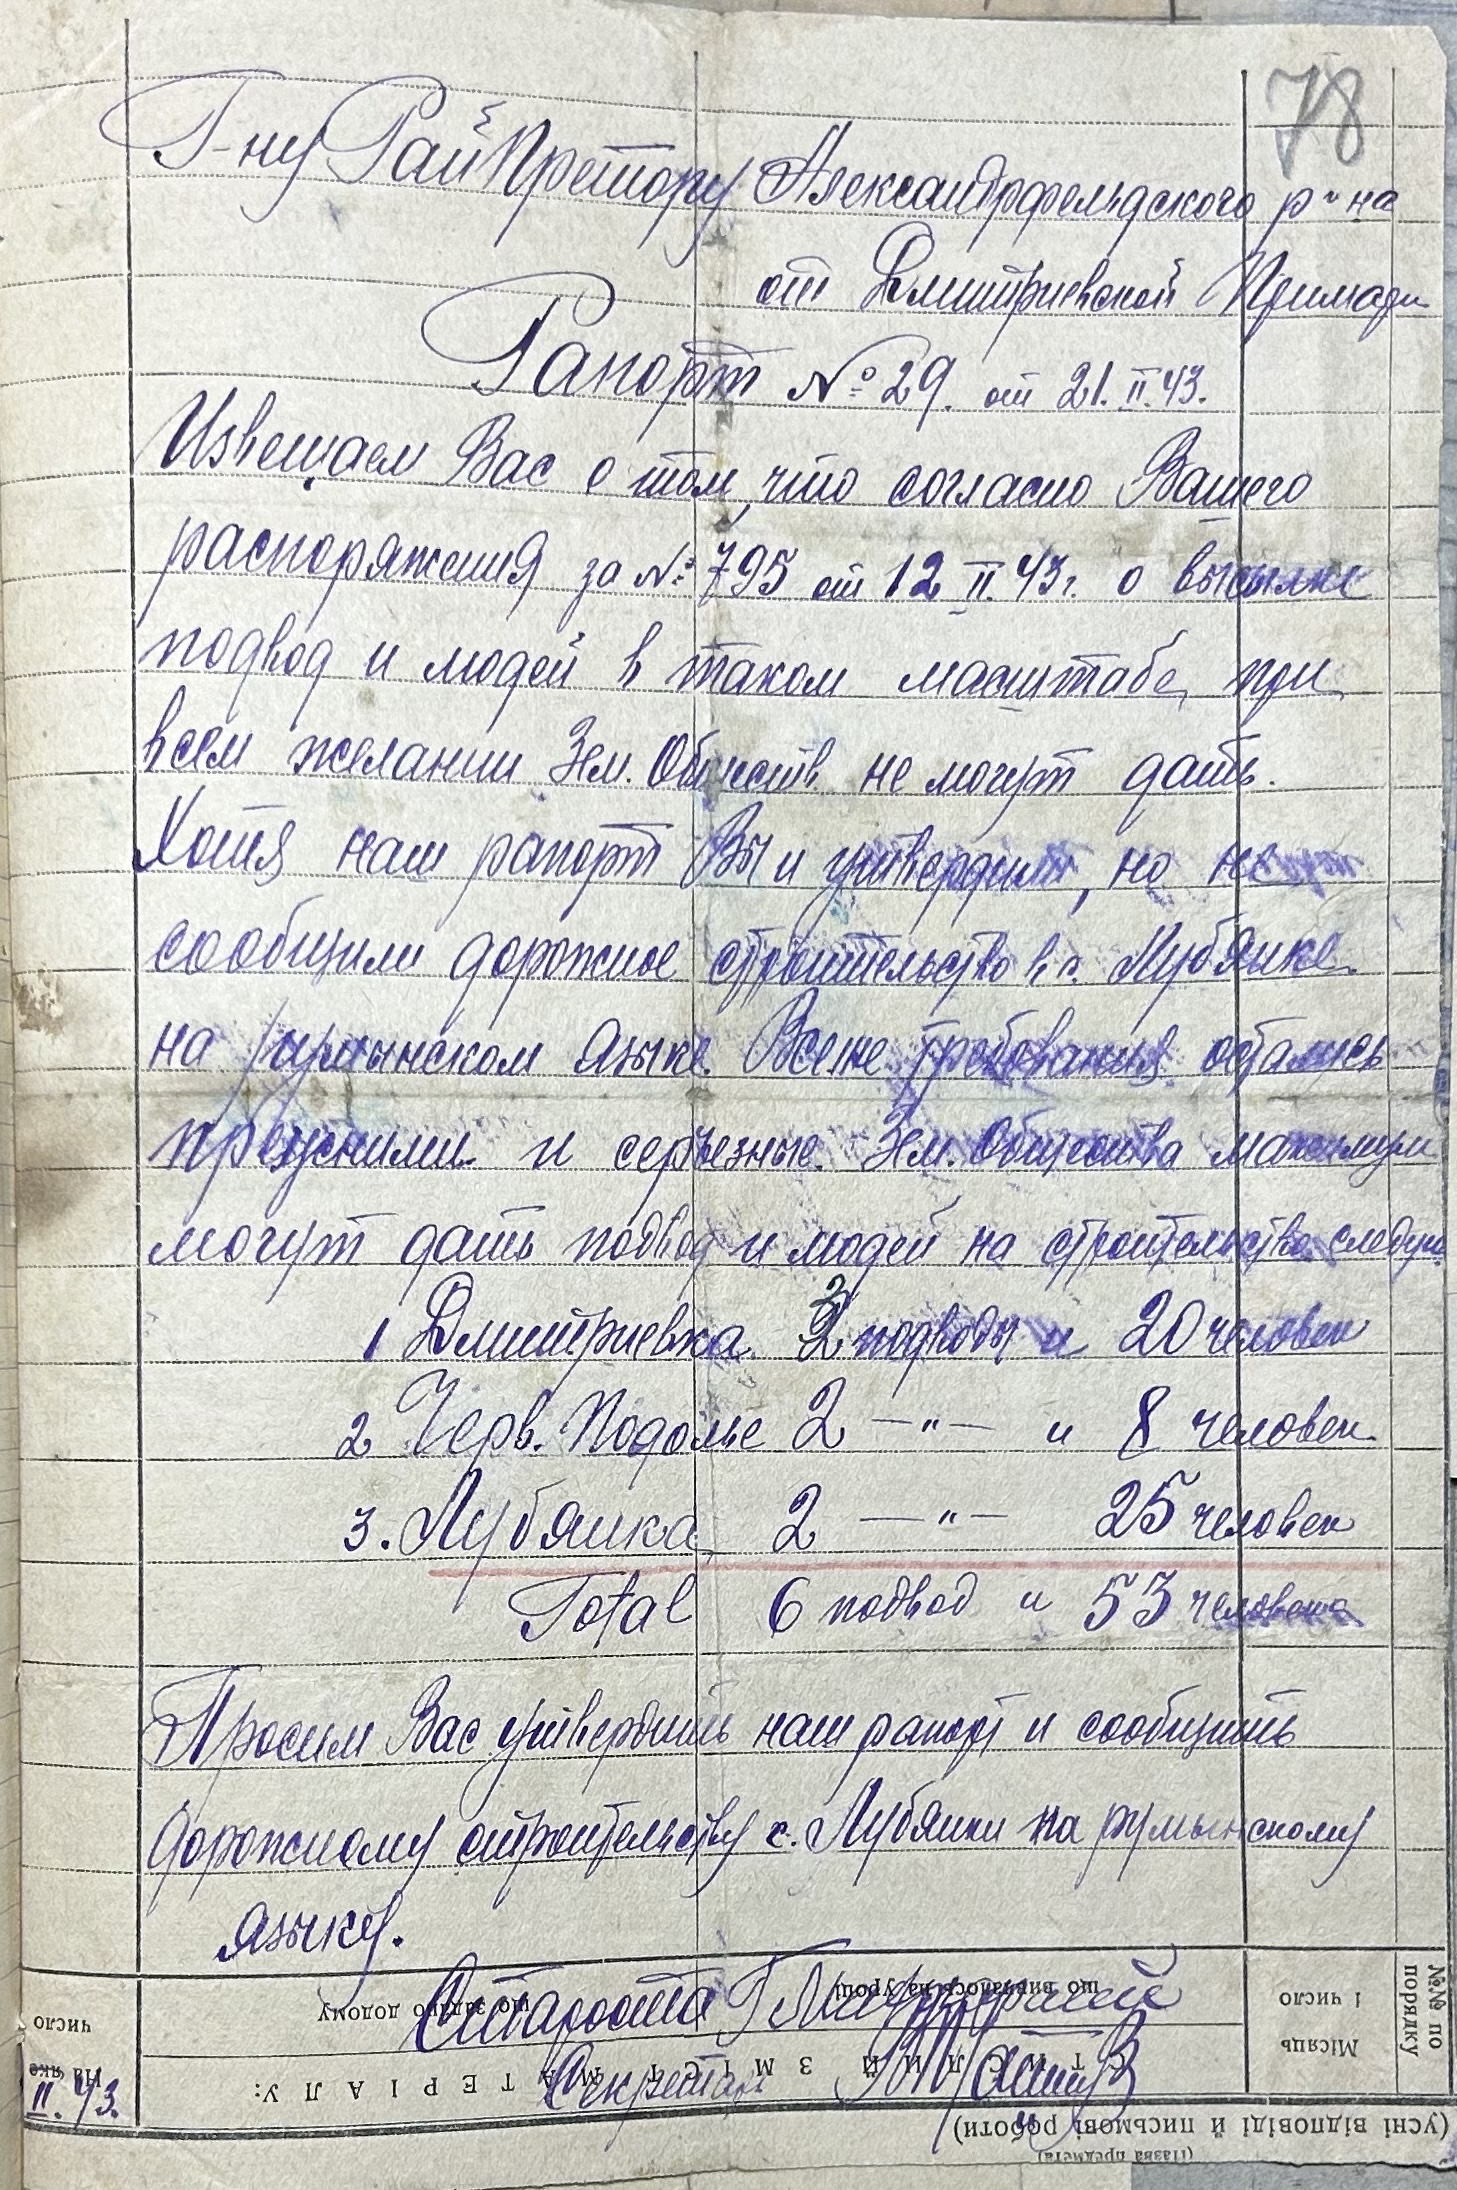 78
Г-ну РайПретору Александрфельдского р-на
от Дмитриевской Примари
Рапорт №29. от 21.II.43.
Извещаем Вас о том, что согласно Вашего
распоряжения за №795 от 12 II.43г. о высылке
подвод и людей в таком масштабе, при
всем желании Зем. Обществ. не могут дать.
Хотя наш рапорт Вы и утвердили, но не
сообщили дорожное строительство в с. Лубянке
на румынском языке. Все же требования остались
прежними и серъезные. Зем. Общества максимум
могут дать подвод и людей на строительство следующ.
1 Дмитриевка 2 подводы и 20 человек
2 Черв. Подолье 2 —"— и 8 человек
3. Лубянка 2 —"— 25 человек
Total 6 подвод и 53 человека
Просим Вас утвердить наш рапорт и сообщить
дорожному строительству с. Лубянки на румынскому
языку.
Староста
Секретарь
II.43.
№№ по порядку
Місяць і число
СТИСЛИЙ ЗМІСТ МАТЕРІАЛУ:
що вивчалось на уроці
що задано додому
На яке число
(усні відповіді й письмові роботи)
(Назва предмета)